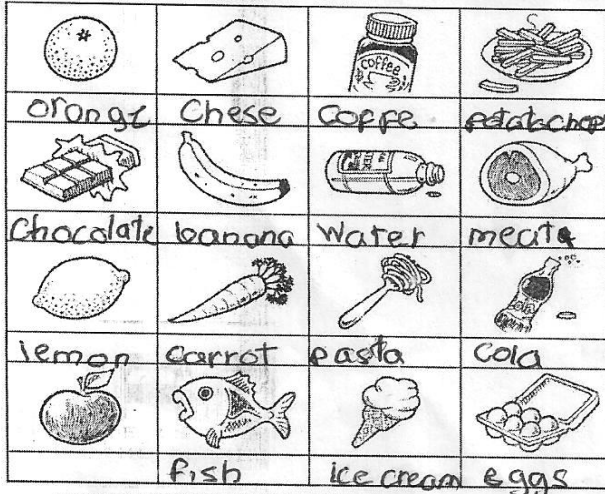 coffee
orange chese coffe potatochop
chocolate banana water meat
cola
lemon carrot pasta cola
fish ice cream eggs